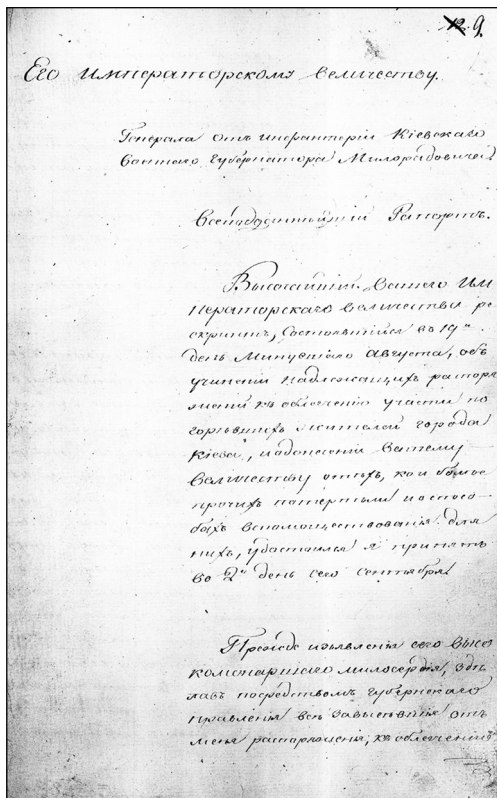 12. 9.
Его Императорскому Величеству.
Генерала отъ инфантеріи Кіевскаго
Военнаго Губернатора Милорадовича
Всеподданнѣйшій Рапортъ.
Высочайшій Вашего Им
ператорскаго Величества ре
скриптъ, состоявшійся въ 19й
день минувшаго августа, объ
учиненіи надлежащихъ распоря
женій къ облегченію участи по
горѣвшихъ жителей города
Кіева, и донесеніи Вашему
Величеству о тѣхъ, кои болѣе
прочихъ потерпѣли и о спосо
бахъ вспомоществованія для
нихъ, удостоился я принять
во 2й день сего сентября.
Прежде изъявленія сего высо
комонаршаго милосердія, здѣ
лавъ посредствомъ Губернскаго
правленія всѣ зависѣвшія отъ
меня распоряженія, къ облегченію